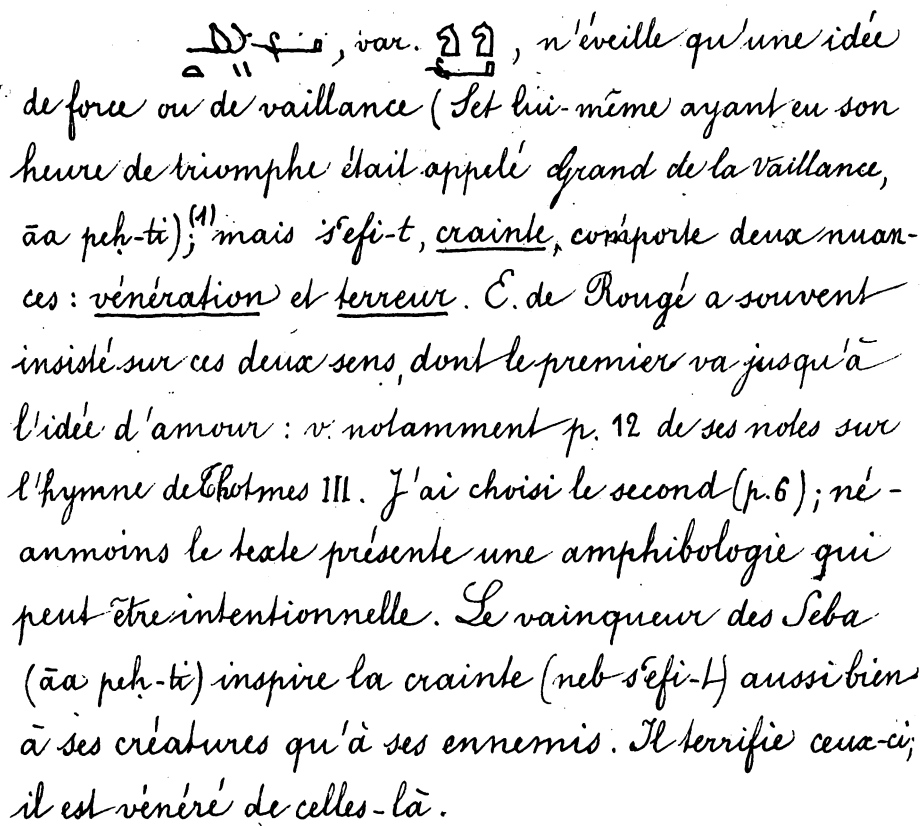 , var. , n'éveille qu'une idée
de force ou de vaillance (Set lui-même ayant eu son
heure de triomphe était appelé Grand de la Vaillance,
āa peḥ-ti);(1) mais s'efi-t, crainte, comporte deux nuan-
ces : vénération et terreur. E. de Rougé a souvent
insisté sur ces deux sens, dont le premier va jusqu'à
l'idée d'amour : v. notamment p. 12 de ses notes sur
l'hymne de Thotmes III. J'ai choisi le second (p. 6) ; né-
anmoins le texte présente une amphibologie qui
peut être intentionnelle. Le vainqueur des Seba
(āa peḥ-ti) inspire la crainte (neb s'efi-t) aussi bien
à ses créatures qu'à ses ennemis. Il terrifie ceux-ci;
il est vénéré de celles-là.